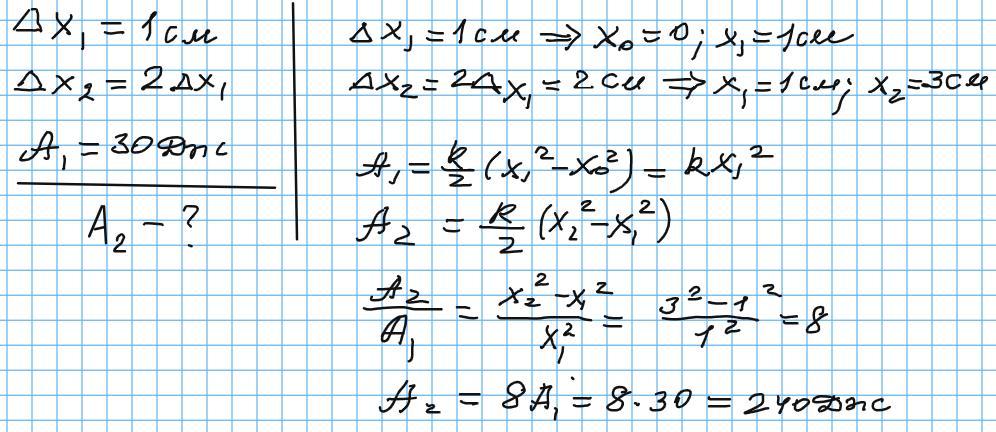 Δx₁ = 1 см
Δx₂ = 2Δx₁
A₁ = 30 Дж
A₂ - ?
Δx₁ = 1 см ⇒ x₀ = 0; x₁ = 1 см
Δx₂ = 2Δx₁ = 2 см ⇒ x₁ = 1 см; x₂ = 3 см
A₁ = k/2 (x₁² - x₀²) = kx₁²
A₂ = k/2 (x₂² - x₁²)
A₂/A₁ = (x₂² - x₁²)/x₁² = (3² - 1²)/1² = 8
A₂ = 8A₁ = 8·30 = 240 Дж